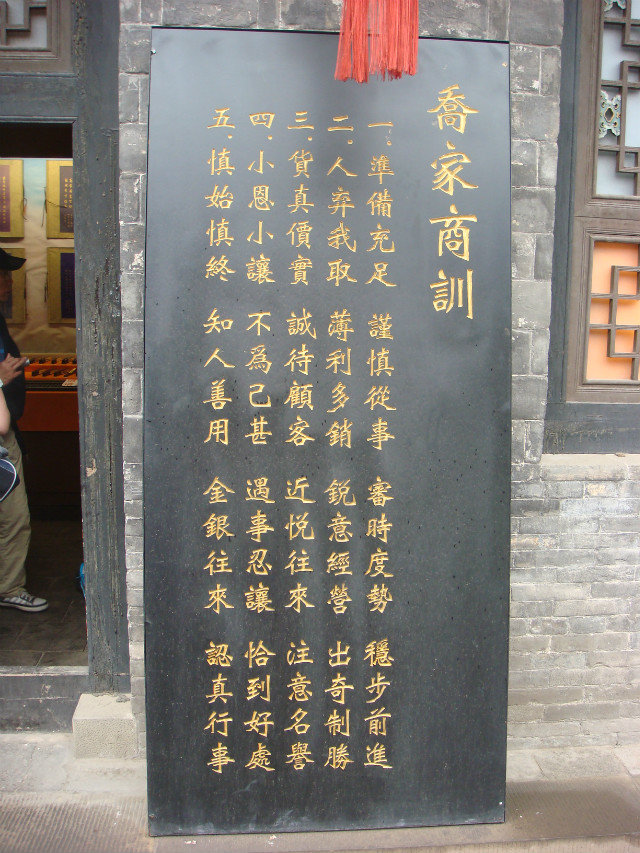 喬家商訓
一．準備充足 謹慎從事 審時度勢 穩步前進
二．人弃我取 薄利多銷 銳意經營 出奇制勝
三．貨真價實 誠待顧客 近悅往來 注意名譽
四．小恩小讓 不爲己甚 遇事忍讓 恰到好處
五．慎始慎終 知人善用 金銀往來 認真行事